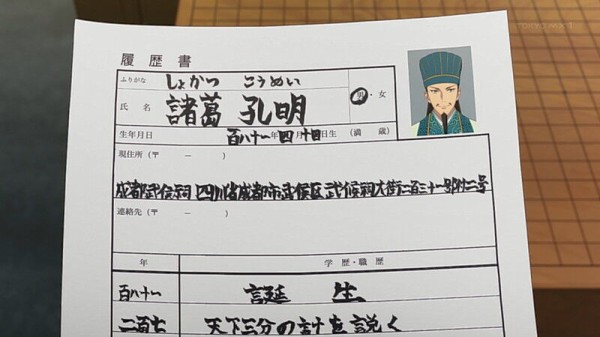 履歴書
ふりがな しょかつ こうめい
氏名 諸葛 孔明 男・女
生年月日 百八十一年四月十日生 (満 歳)
現住所(〒 － )
成都武侯祠 四川省成都市武侯区武侯祠大街二百三十一号附二号
連絡先(〒 － )
年 学歴・職歴
百八十一 誕生
二百七 天下三分の計を説く